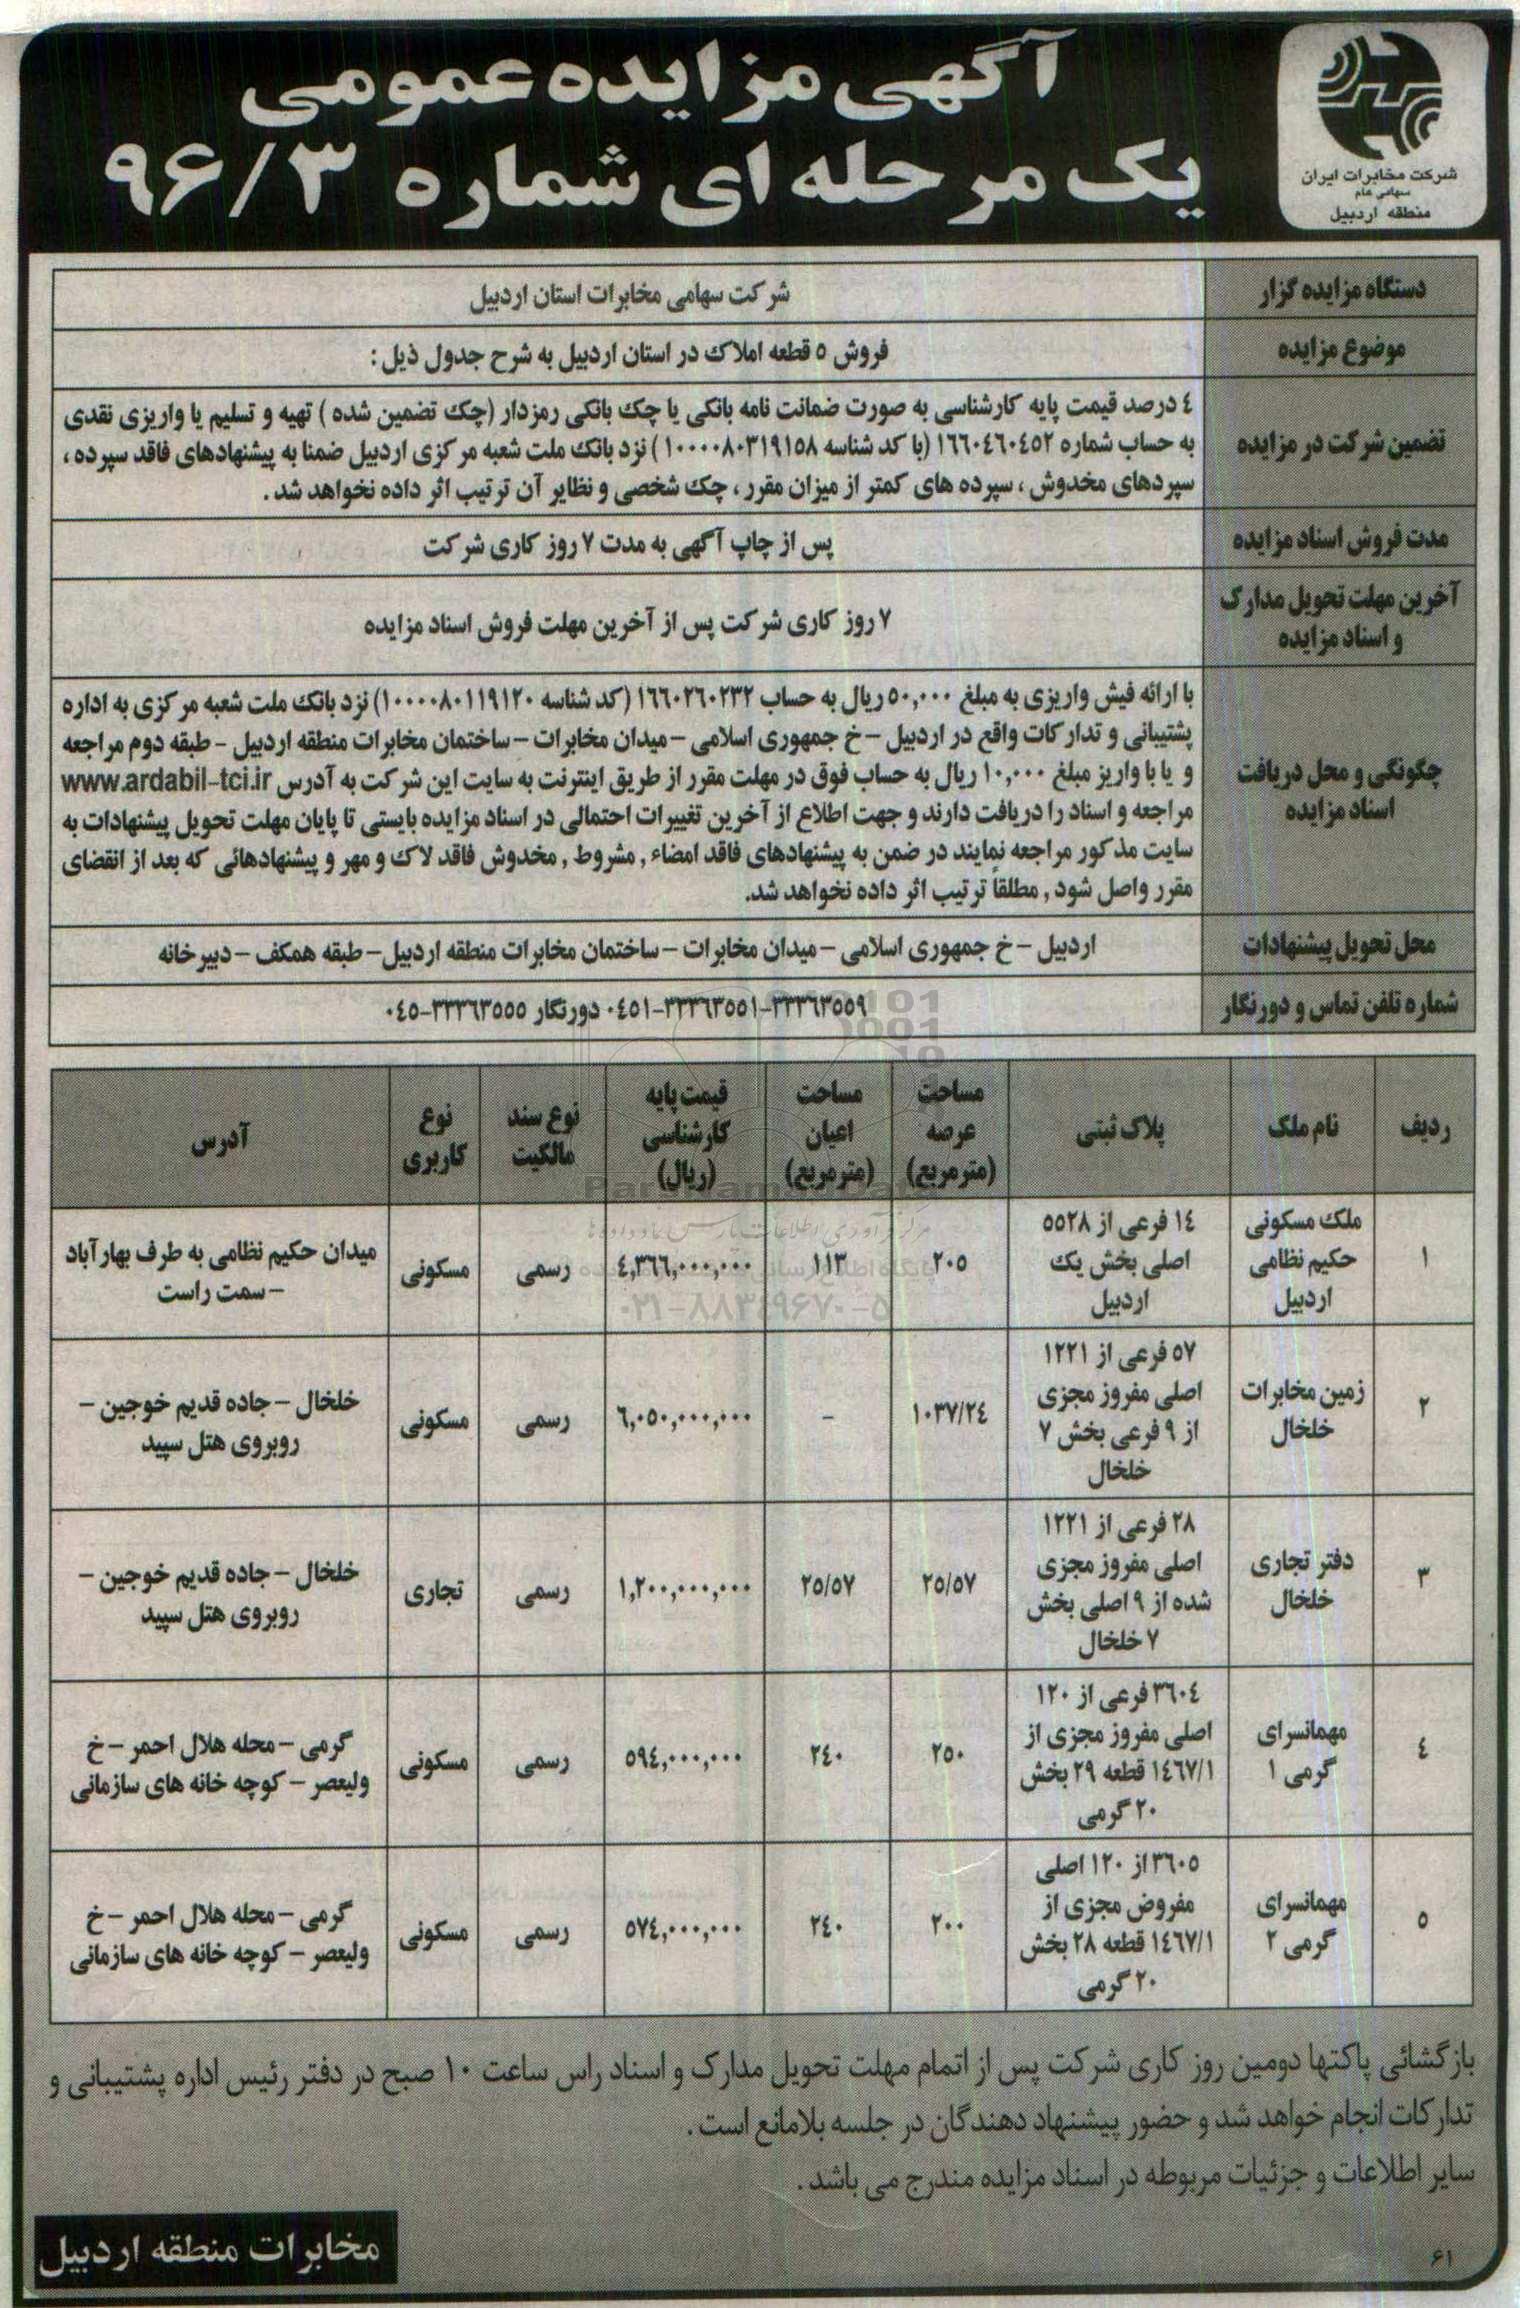 آگهی مزایده عمومی
یک مرحله ای شماره ۹۶/۳
شرکت مخابرات ایران
سهامی عام
منطقه اردبیل
دستگاه مزایده گزار
شرکت سهامی مخابرات استان اردبیل
موضوع مزایده
فروش ۵ قطعه املاک در استان اردبیل به شرح جدول ذیل :
تضمین شرکت در مزایده
۴ درصد قیمت پایه کارشناسی به صورت ضمانت نامه بانکی یا چک بانکی رمزدار (چک تضمین شده ) تهیه و تسلیم یا واریزی نقدی
به حساب شماره ۱۶۶۰۴۶۰۴۵۲ (با کد شناسه ۱۰۰۰۰۸۰۳۱۹۱۵۸ ) نزد بانک ملت شعبه مرکزی اردبیل ضمنا به پیشنهادهای فاقد سپرده ،
سپردهای مخدوش ، سپرده های کمتر از میزان مقرر ، چک شخصی و نظایر آن ترتیب اثر داده نخواهد شد .
مدت فروش اسناد مزایده
پس از چاپ آگهی به مدت ۷ روز کاری شرکت
آخرین مهلت تحویل مدارک
و اسناد مزایده
۷ روز کاری شرکت پس از آخرین مهلت فروش اسناد مزایده
چگونگی و محل دریافت
اسناد مزایده
با ارائه فیش واریزی به مبلغ ۵۰,۰۰۰ ریال به حساب ۱۶۶۰۲۶۰۲۳۲ (کد شناسه ۱۰۰۰۰۸۰۱۱۹۱۲۰) نزد بانک ملت شعبه مرکزی به اداره
پشتیبانی و تدارکات واقع در اردبیل – خ جمهوری اسلامی – میدان مخابرات – ساختمان مخابرات منطقه اردبیل - طبقه دوم مراجعه
و یا با واریز مبلغ ۱۰,۰۰۰ ریال به حساب فوق در مهلت مقرر از طریق اینترنت به سایت این شرکت به آدرس www.ardabil-tci.ir
مراجعه و اسناد را دریافت دارند و جهت اطلاع از آخرین تغییرات احتمالی در اسناد مزایده بایستی تا پایان مهلت تحویل پیشنهادات به
سایت مذکور مراجعه نمایند در ضمن به پیشنهادهای فاقد امضاء , مشروط , مخدوش فاقد لاک و مهر و پیشنهادهائی که بعد از انقضای
مقرر واصل شود , مطلقاً ترتیب اثر داده نخواهد شد.
محل تحویل پیشنهادات
اردبیل – خ جمهوری اسلامی – میدان مخابرات – ساختمان مخابرات منطقه اردبیل– طبقه همکف – دبیرخانه
شماره تلفن تماس و دورنگار
۳۳۳۶۳۵۵۹-۰۴۵۱-۳۳۳۶۳۵۵۱ دورنگار ۳۳۳۶۳۵۵۵-۰۴۵
ردیف | نام ملک | پلاک ثبتی | مساحت عرصه (مترمربع) | مساحت اعیان (مترمربع) | قیمت پایه کارشناسی (ریال) | نوع سند مالکیت | نوع کاربری | آدرس
۱ | ملک مسکونی حکیم نظامی اردبیل | ۱۴ فرعی از ۵۵۲۸ اصلی بخش یک اردبیل | ۲۰۵ | ۱۱۳ | ۴,۳۶۶,۰۰۰,۰۰۰ | رسمی | مسکونی | میدان حکیم نظامی به طرف بهارآباد – سمت راست
۲ | زمین مخابرات خلخال | ۵۷ فرعی از ۱۲۲۱ اصلی مفروز مجزی از ۹ فرعی بخش ۷ خلخال | ۱۰۳۷/۲۴ | – | ۶,۰۵۰,۰۰۰,۰۰۰ | رسمی | مسکونی | خلخال – جاده قدیم خوجین – روبروی هتل سپید
۳ | دفتر تجاری خلخال | ۲۸ فرعی از ۱۲۲۱ اصلی مفروز مجزی شده از ۹ اصلی بخش ۷ خلخال | ۲۵/۵۷ | ۲۵/۵۷ | ۱,۲۰۰,۰۰۰,۰۰۰ | رسمی | تجاری | خلخال – جاده قدیم خوجین – روبروی هتل سپید
۴ | مهمانسرای گرمی ۱ | ۳۶۰۴ فرعی از ۱۲۰ اصلی مفروز مجزی از ۱۴۶۷/۱ قطعه ۲۹ بخش ۲۰ گرمی | ۲۵۰ | ۲۴۰ | ۵۹۴,۰۰۰,۰۰۰ | رسمی | مسکونی | گرمی – محله هلال احمر – خ ولیعصر – کوچه خانه های سازمانی
۵ | مهمانسرای گرمی ۲ | ۳۶۰۵ از ۱۲۰ اصلی مفروض مجزی از ۱۴۶۷/۱ قطعه ۲۸ بخش ۲۰ گرمی | ۲۰۰ | ۲۴۰ | ۵۷۴,۰۰۰,۰۰۰ | رسمی | مسکونی | گرمی – محله هلال احمر – خ ولیعصر – کوچه خانه های سازمانی
۰۲۱-۸۸۳۴۹۶۷۰-۵
بازگشائی پاکتها دومین روز کاری شرکت پس از اتمام مهلت تحویل مدارک و اسناد راس ساعت ۱۰ صبح در دفتر رئیس اداره پشتیبانی و
تدارکات انجام خواهد شد و حضور پیشنهاد دهندگان در جلسه بلامانع است .
سایر اطلاعات و جزئیات مربوطه در اسناد مزایده مندرج می باشد .
مخابرات منطقه اردبیل
۶۱